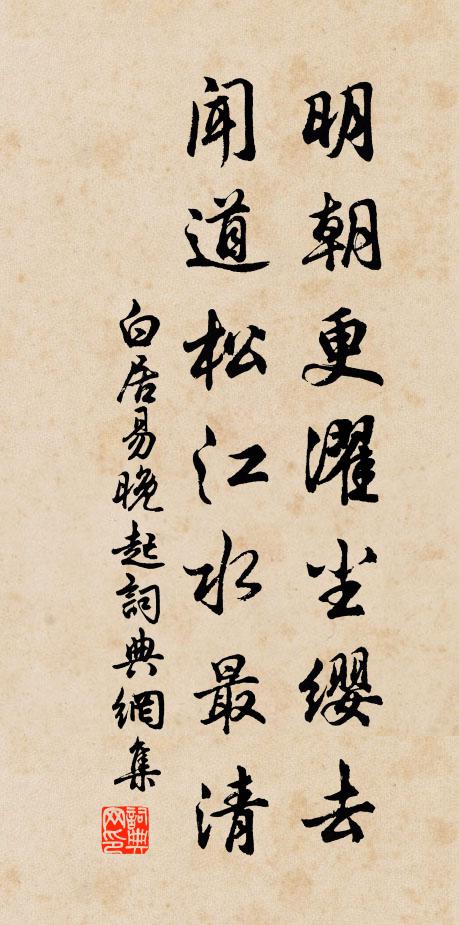 明朝更濯尘缨去
闻道松江水最清
白居易晚起詞典網集
詞典网印